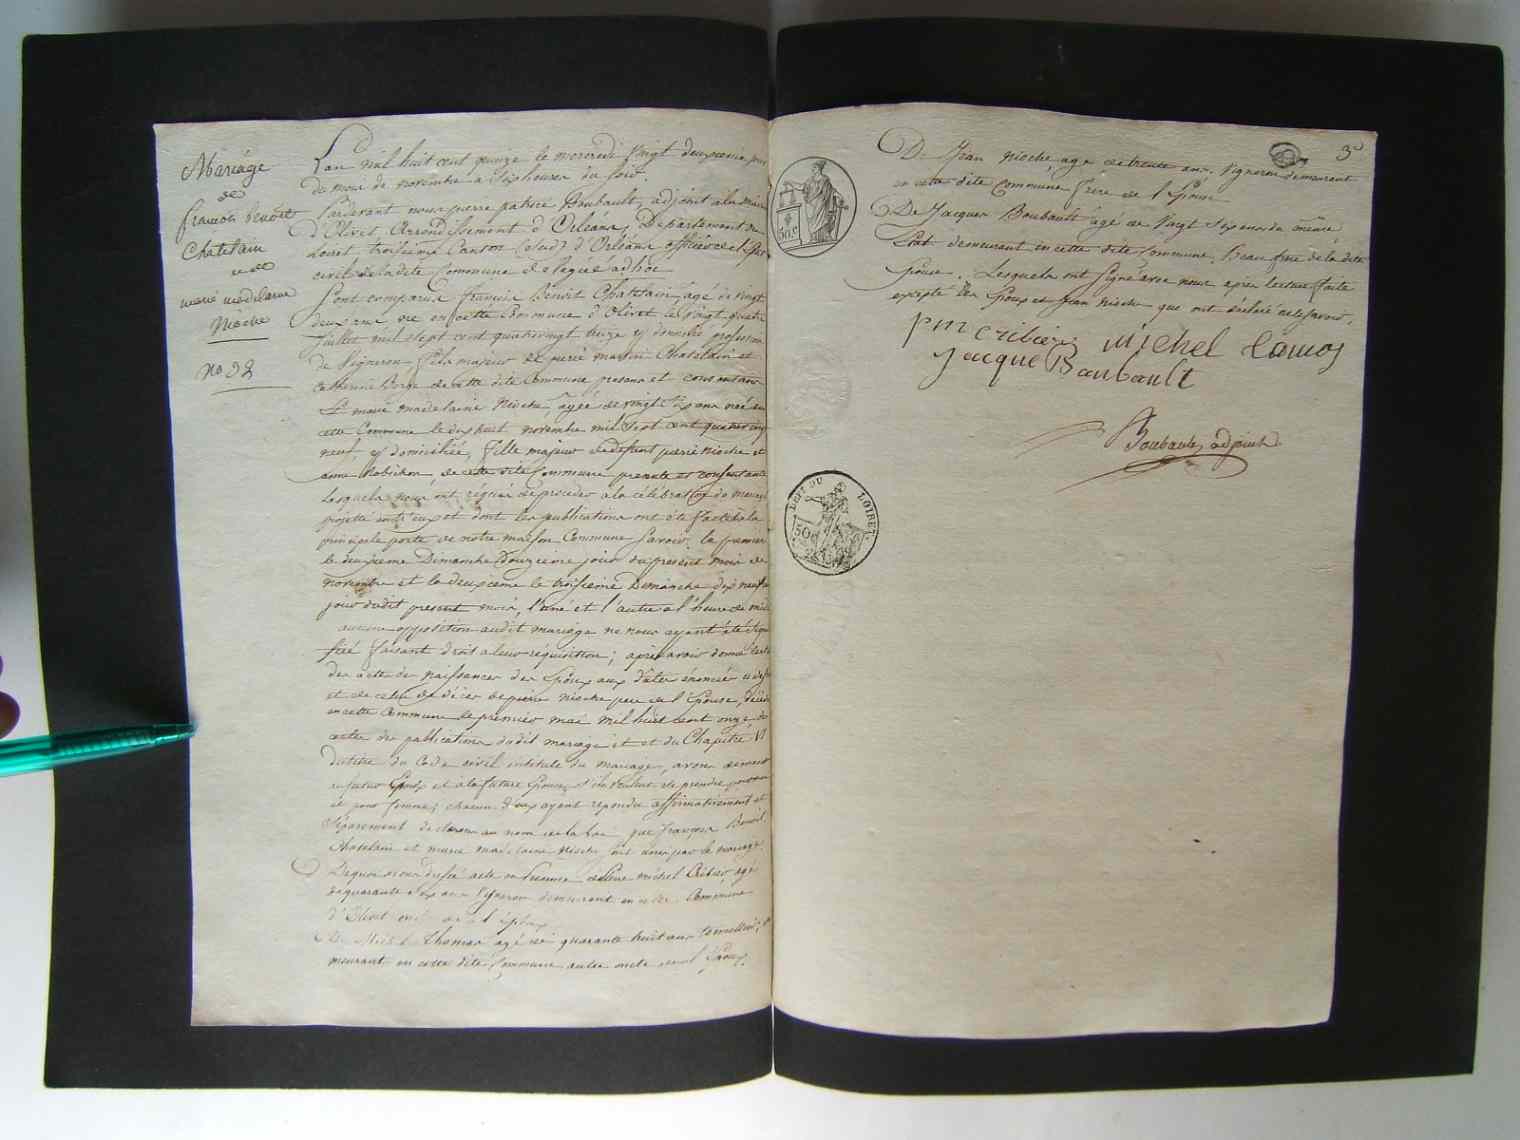 Mariage
de
françois Benoist
Chatelain
et de
marie madelaine
Nioche
no 32
L'an mil huit cent quinze le mercredi Vingt deuxieme jour
du mois de novembre a Six heures du soir.
Pardevant nous pierre patrice Boubault, adjoint a la Mairie
d'Olivet Arrondissement d'Orléans, Departement du
Loiret troisieme Canton (sud) d'Orléans officier de l'état
civil de la dite Commune delegué ad hoc
Sont comparus françois Benoit Chatelain, agé de vingt
deux ans né en cette Commune d'Olivet le vingt quatre
juillet mil sept cent quatrevingt treize y domicilié profession
de Vigneron fils majeur de pierre martin Chatelain et
Catherine de cette dite Commune presens et consentans
Et marie madelaine Nioche, agée de vingt Six ans née en
cette Commune le dix huit novembre mil sept cent quatre vingt
neuf y domiciliée, fille majeur de defunt pierre Nioche et
anne Robichon, de cette dite Commune presente et consentante
Lesquels nous ont réquis de proceder a la célébration du mariage
projetté entr'eux et dont les publications ont été faites a la
principale porte de notre maison Commune Savoir, la premiere
le deuxieme Dimanche Douzieme jour du present mois de
novembre et la deuxieme le troisieme Dimanche dix neuf
jour dudit present mois, l'une et l'autre a l'heure de midi
aucune opposition audit mariage ne nous ayant été signi
fiée faisant droit a leur réquisition; après avoir donné lecture
des actes de naissances des Epoux aux dates enoncées
et de celui de décès de pierre Nioche pere de l'Epouse, décédé
en cette Commune le premier mai mil huit cent onze, des
actes de publications dudit mariage et du Chapitre VI
du titre du Code civil intitulé du mariage, avons demandé
au futur Epoux et a la future Epouse s'ils veulent se prendre pour mari
et pour femme; chacun d'eux ayant repondu affirmativement et
Séparement declarons au nom de la loi que françois Benoit
Chatelain et marie madelaine Nioche sont unis par le mariage.
De quoi avons dressé acte en presence de michel agé
de quarante ans Vigneron demeurant en cette Commune
d'Olivet oncle de l'époux
De Michel Thomas agé de quarante huit ans Tonnellier, de
meurant en cette dite Commune autre oncle de l'Epoux.
3e
De Jean Nioche, agé de trente ans, Vigneron demeurant
en cette dite Commune frere de l'Epouse
De Jacques Boubault agé de Vingt Six ans du même
Etat demeurant en cette dite Commune, Beau frere de la dite
Epouse. Lesquels ont signé avec nous après lecture faite
excepté les Epoux et Jean Nioche qui ont déclaré ne le savoir.
michel
Jacque Baubault
Boubault, adjoint
50 c
DEPT DU LOIRET
50 c